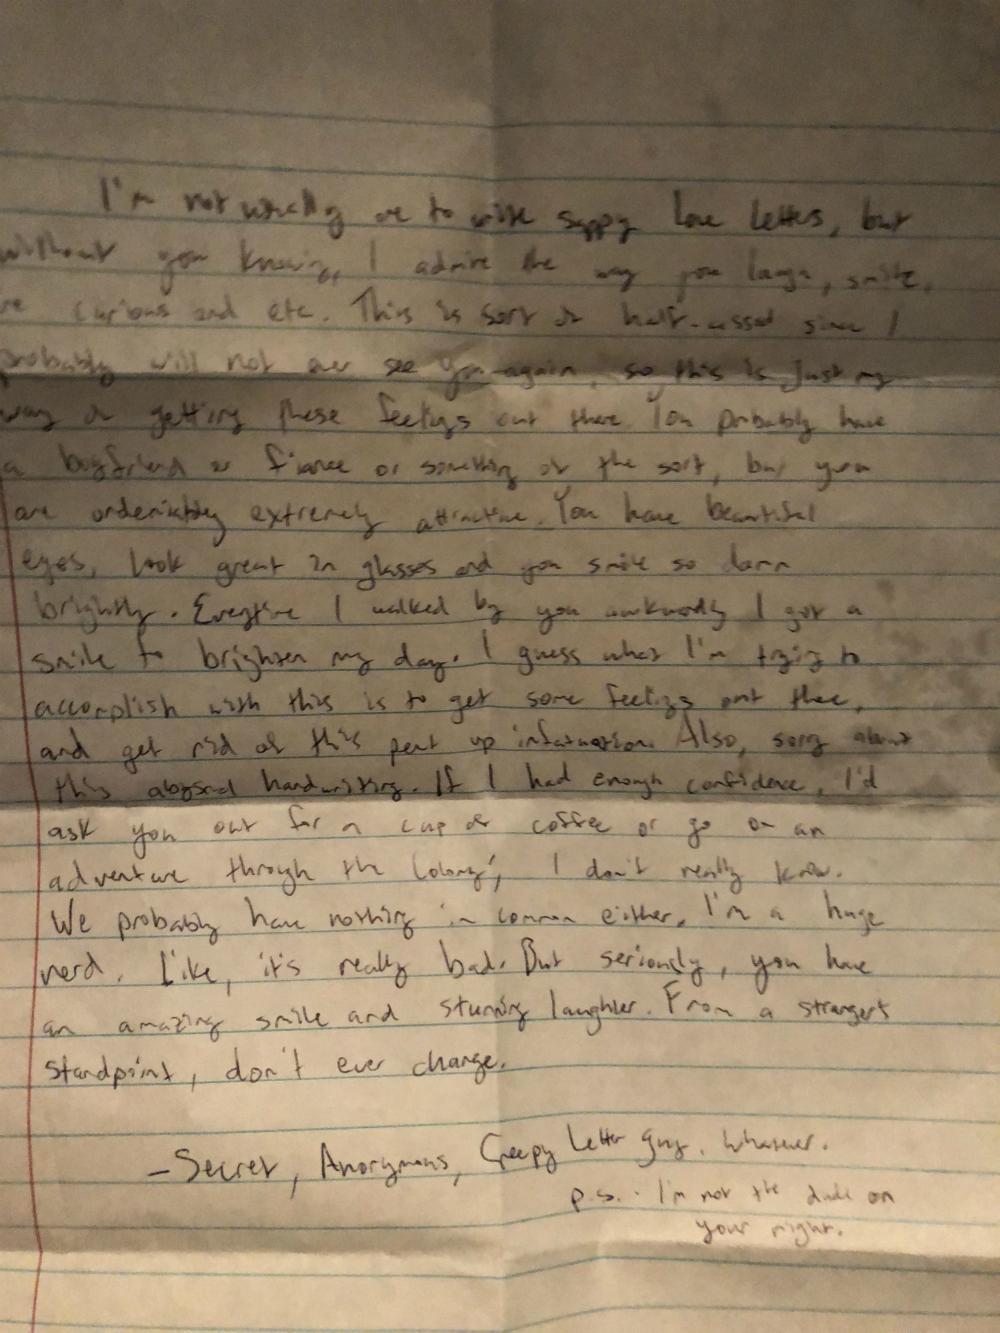 I'm not usually one to write sappy love letters, but
without you knowing, I admire the way you laugh, smile,
curious and etc. This is sort of half-assed since I
probably will not ever see you again, so this is just my
way of getting these feelings out there. You probably have
a boyfriend or fiance or something of the sort, but you
are undeniably extremely attractive. You have beautiful
eyes, look great in glasses and you smile so damn
brightly. Everytime I walked by you awkwardly I got a
smile to brighten my day. I guess what I'm trying to
accomplish with this is to get some feelings out there,
and get rid of this pent up infatuation. Also, sorry about
this abysmal handwriting. If I had enough confidence, I'd
ask you out for a cup of coffee or go on an
adventure through the 'Colony', I don't really know.
We probably have nothing in common either. I'm a huge
nerd. Like, it's really bad. But seriously, you have
an amazing smile and stunning laughter. From a stranger's
standpoint, don't ever change.
-Secret, Anonymous, Creepy Letter guy. Whatever.
p.s. - I'm not the dude on
your right.